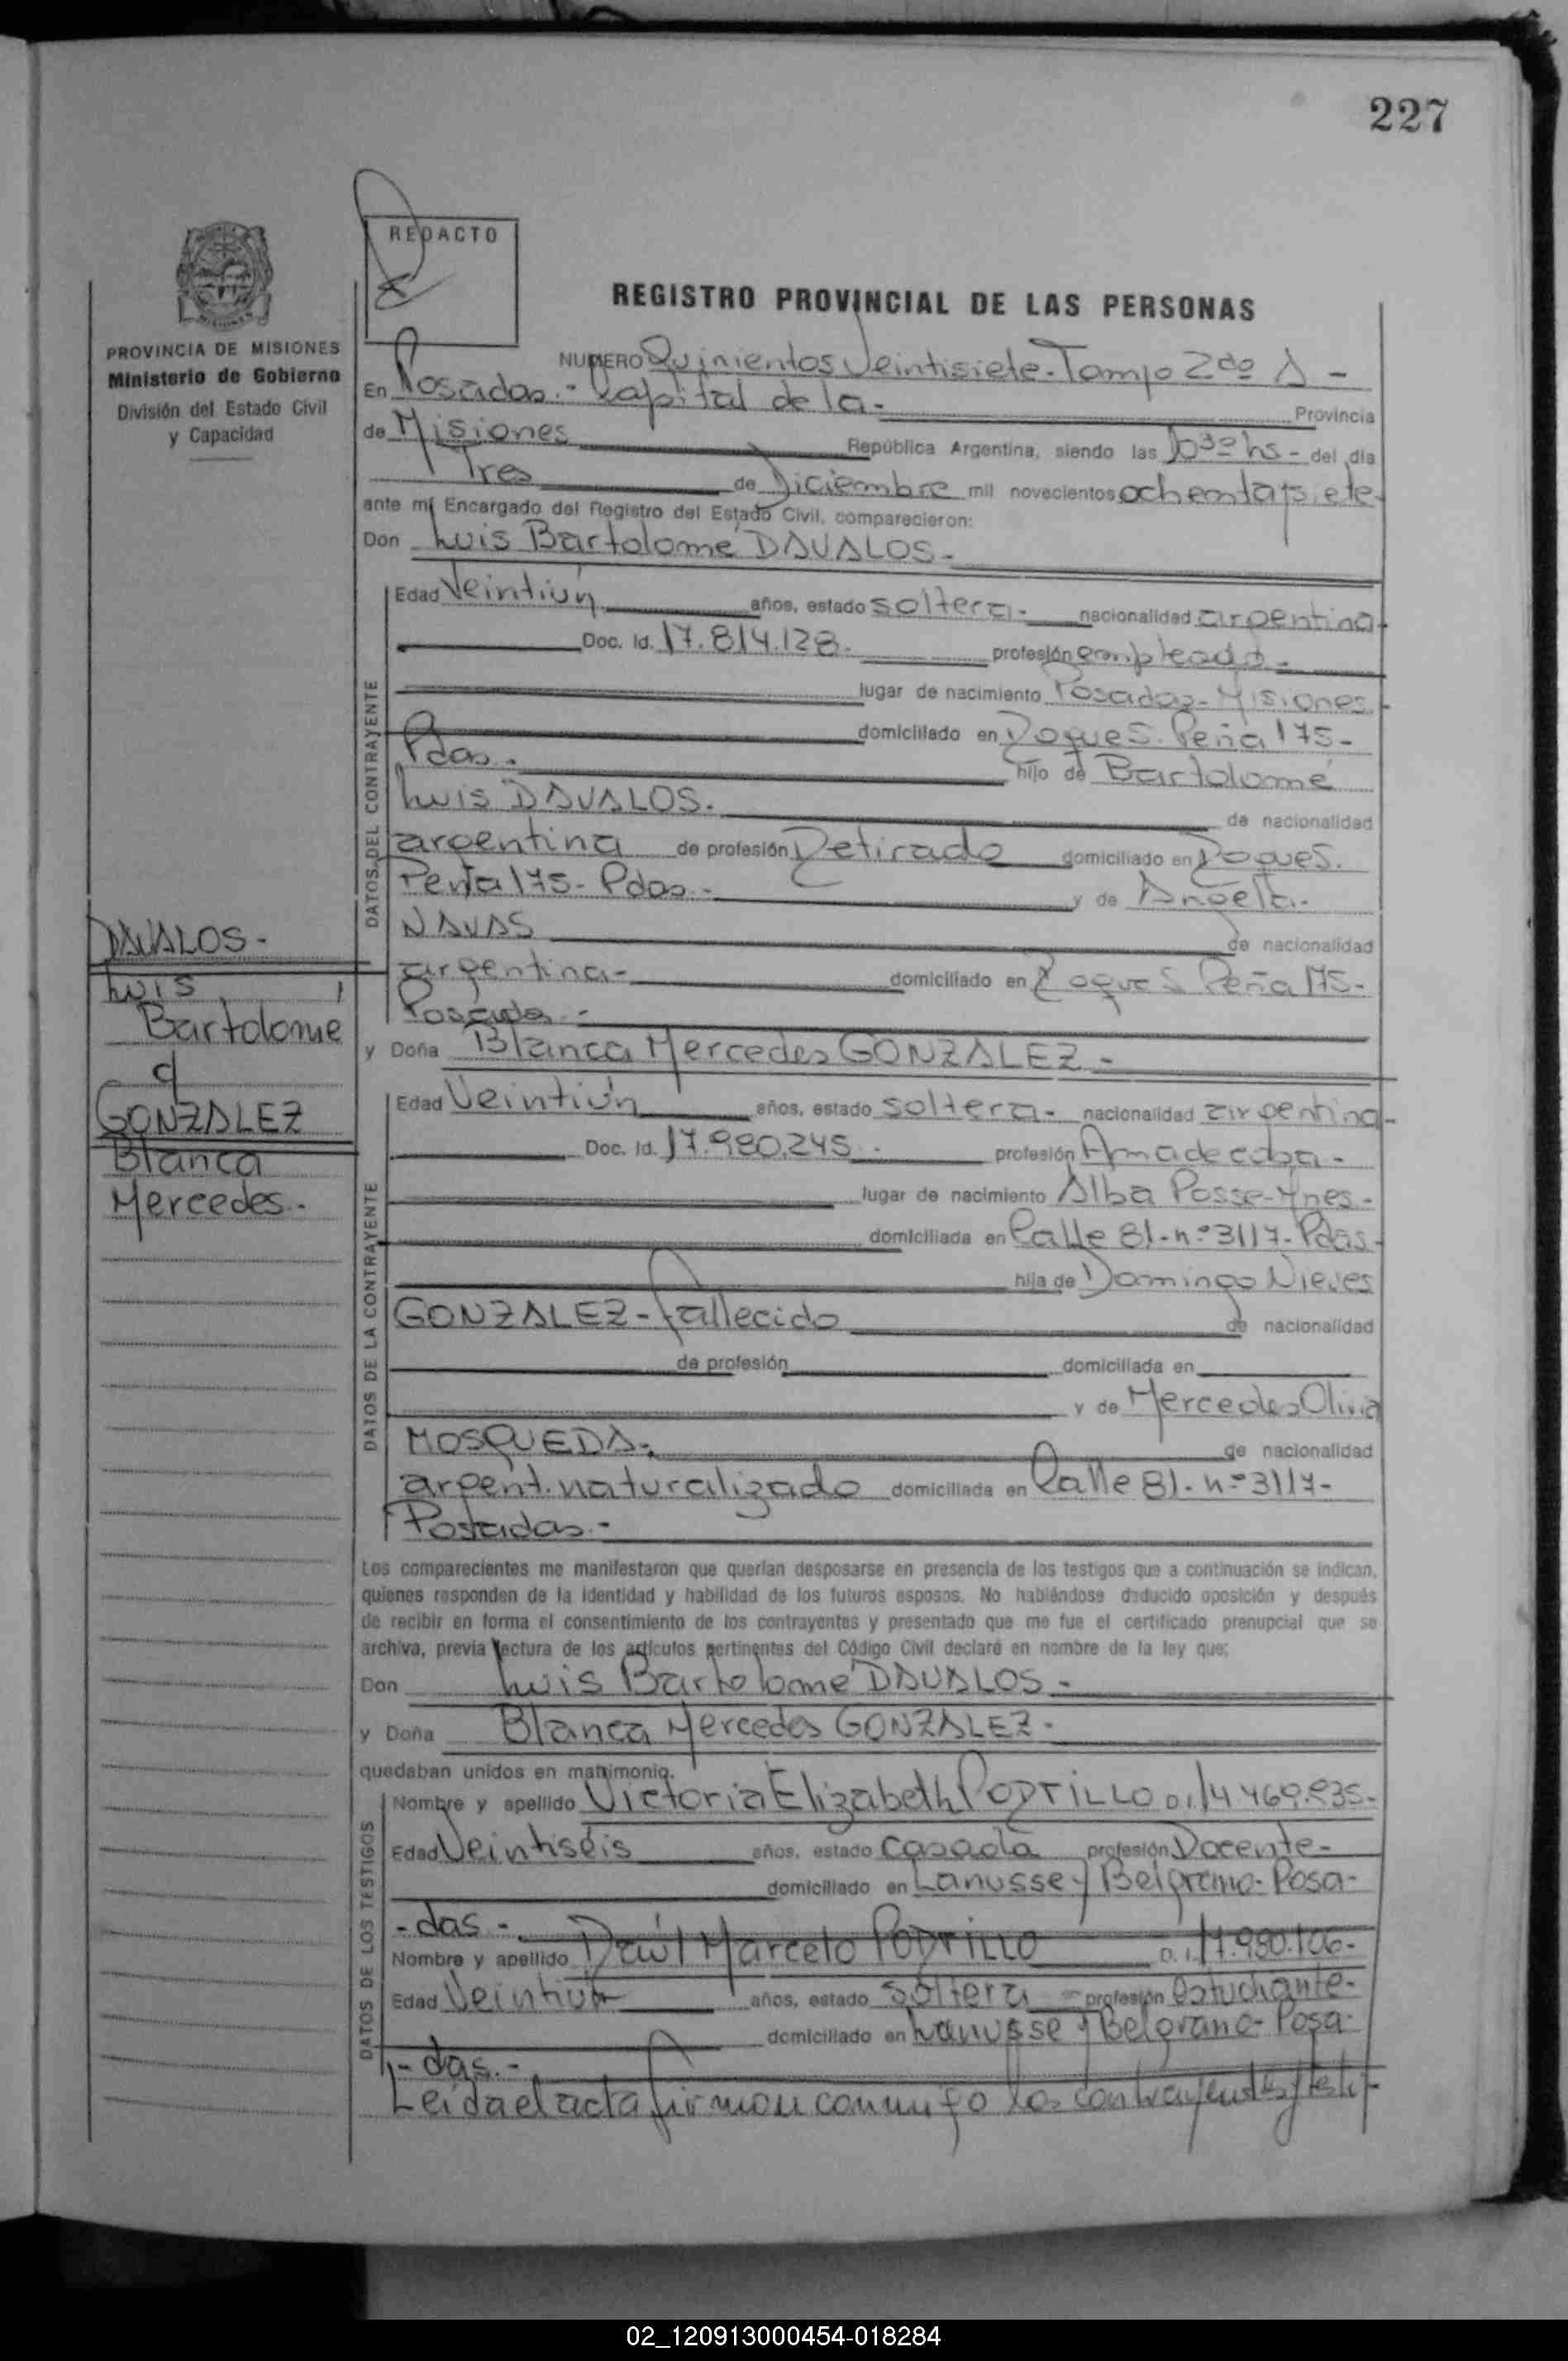 227
REDACTO
REGISTRO PROVINCIAL DE LAS PERSONAS
PROVINCIA DE MISIONES
Ministerio de Gobierno
División del Estado Civil
y Capacidad
NUMERO Quinientos Veintisiete - Tomo 2do A -
En Posadas - Capital de la - Provincia
de Misiones República Argentina, siendo las 10 30 hs - del día
Tres de Diciembre mil novecientos ochenta y siete
ante mí Encargado del Registro del Estado Civil, comparecieron:
Don Luis Bartolomé DAVALOS -
Edad Veintiún años, estado soltera - nacionalidad argentina -
Doc. Id. 17.814.128 - profesión empleado -
lugar de nacimiento Posadas - Misiones
domiciliado en Roque S. Peña 175 -
Pdas - hijo de Bartolomé
Luis DAVALOS - de nacionalidad
argentina de profesión Retirado domiciliado en Roque S.
Peña 175 - Pdas - y de Angela -
NAVAS de nacionalidad
argentina - domiciliado en Roque S. Peña 175 -
Posadas -
y Doña Blanca Mercedes GONZALEZ -
Edad Veintiún años, estado soltera - nacionalidad argentina -
Doc. Id. 17.980.245 - profesión Ama de casa -
lugar de nacimiento Alba Posse - Mnes -
domiciliada en Calle 81 - nº 3117 - Pdas -
hija de Domingo Nieves
GONZALEZ - fallecido de nacionalidad
de profesión domiciliada en
y de Mercedes Olivia
MOSQUEDA - de nacionalidad
argent. naturalizado domiciliada en Calle 81 - nº 3117 -
Posadas -
DATOS DEL CONTRAYENTE
DATOS DE LA CONTRAYENTE
DAVALOS -
Luis
Bartolome
c/
GONZALEZ
Blanca
Mercedes -
Los comparecientes me manifestaron que querían desposarse en presencia de los testigos que a continuación se indican,
quienes responden de la identidad y habilidad de los futuros esposos. No habiéndose deducido oposición y después
de recibir en forma el consentimiento de los contrayentes y presentado que me fue el certificado prenupcial que se
archiva, previa lectura de los artículos pertinentes del Código Civil declaré en nombre de la ley que:
Don Luis Bartolomé DAVALOS -
y Doña Blanca Mercedes GONZALEZ -
quedaban unidos en matrimonio.
DATOS DE LOS TESTIGOS
Nombre y apellido Victoria Elizabeth PORTILLO D.I. 14.469.835 -
Edad Veintiséis años, estado casada profesión Docente -
domiciliado en Lanusse y Belgrano - Posa-
- das -
Nombre y apellido Raúl Marcelo PORTILLO D.I. 17.950.106 -
Edad Veintiún años, estado soltera - profesión estudiante -
domiciliado en Lanusse y Belgrano - Posa-
- das -
Leida el acta firman conmigo los contrayentes y testi-
02_120913000454-018284